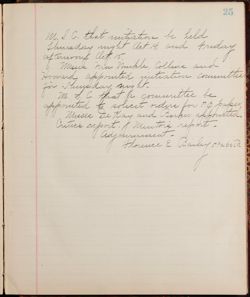 25
M. S. C. that initiation be held
Thursday night Oct. 14 and Friday
afternoon Oct. 15.
Misses Van Winkle, Collins and
Howard appointed initiation committee
for Thursday night.
M. S. C. that a committee be
appointed to solicit orders for paper.
Misses De Kay and Barker appointed.
Critics report. Mentor's report.
Adjournment.
Florence E. Bailey